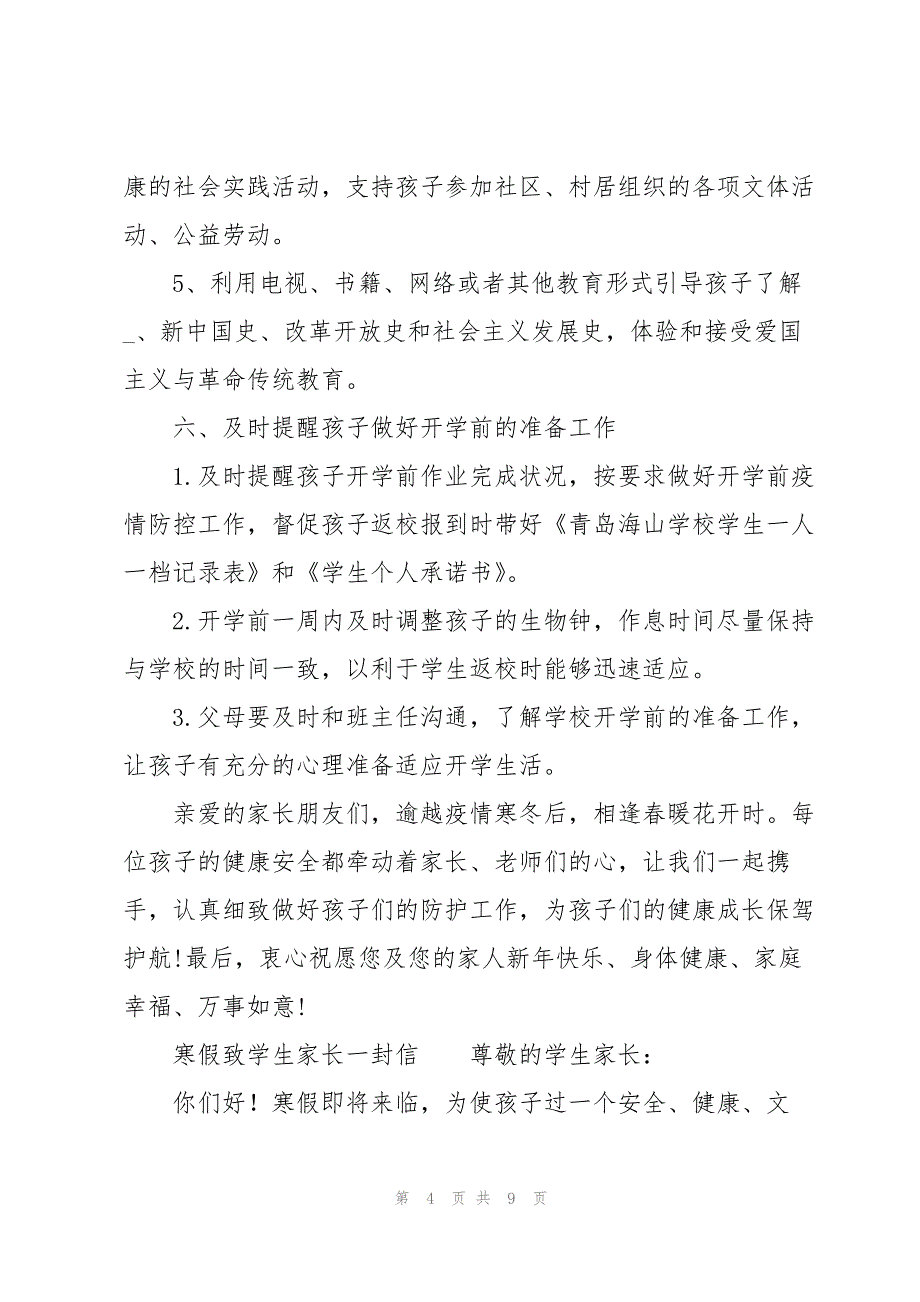 康的社会实践活动，支持孩子参加社区、村居组织的各项文体活
动、公益劳动。
5、利用电视、书籍、网络或者其他教育形式引导孩子了解
_、新中国史、改革开放史和社会主义发展史，体验和接受爱国
主义与革命传统教育。
六、及时提醒孩子做好开学前的准备工作
1.及时提醒孩子开学前作业完成状况，按要求做好开学前疫
情防控工作，督促孩子返校报到时带好《青岛海山学校学生一人
一档记录表》和《学生个人承诺书》。
2.开学前一周内及时调整孩子的生物钟，作息时间尽量保持
与学校的时间一致，以利于学生返校时能够迅速适应。
3.父母要及时和班主任沟通，了解学校开学前的准备工作，
让孩子有充分的心理准备适应开学生活。
亲爱的家长朋友们，逾越疫情寒冬后，相逢春暖花开时。每
位孩子的健康安全都牵动着家长、老师们的心，让我们一起携
手，认真细致做好孩子们的防护工作，为孩子们的健康成长保驾
护航!最后，衷心祝愿您及您的家人新年快乐、身体健康、家庭
幸福、万事如意!
寒假致学生家长一封信　　尊敬的学生家长：
你们好！寒假即将来临，为使孩子过一个安全、健康、文
第 4 页 共 9 页